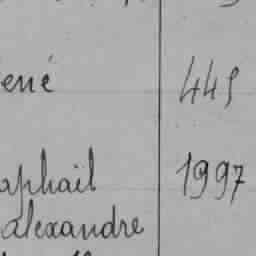 ené 445
aphail 1997
alexandre